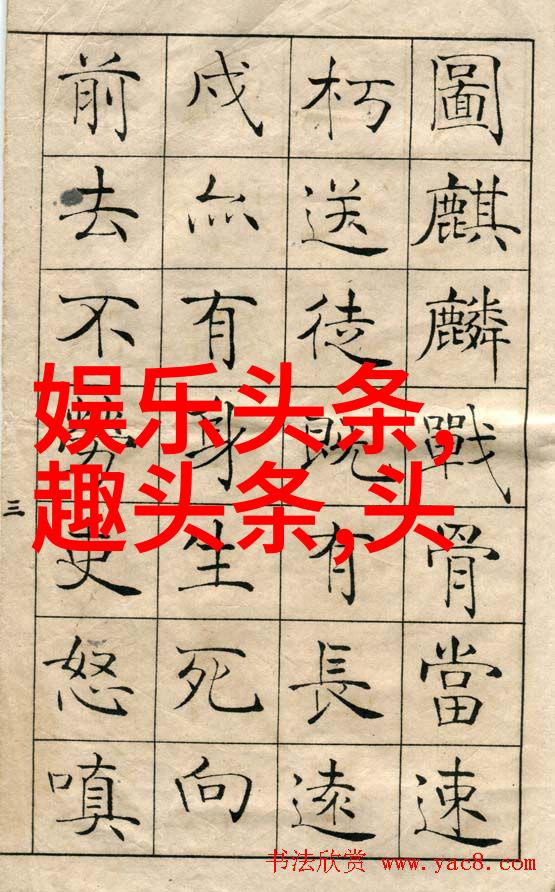 圖麒麟戰骨當速
朽送徒既有長遠
戍亦有身生死向
前去不勞吏怒嗔
三
娱乐头条,
趣头条,头
书法欣赏 www.yac8.com